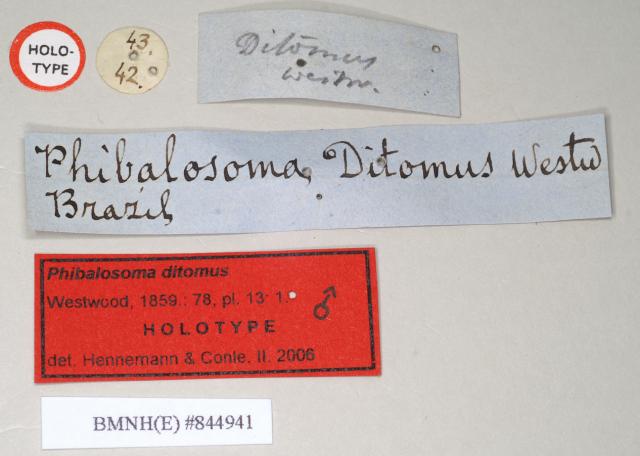 HOLO-
TYPE
43.
42.
Ditomus
Westw.
Phibalosoma, Ditomus Westw
Brazil
Phibalosoma ditomus
Westwood, 1859.: 78, pl. 13: 1. ♂
HOLOTYPE
det. Hennemann & Conle. II. 2006
BMNH(E) #844941